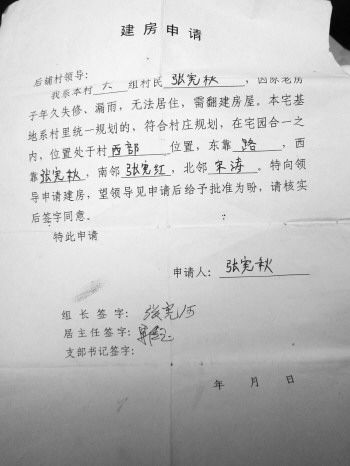 建房申请
后铺村领导:
我系本村 六 组村民 张宪秋 ,因原老房
子年久失修、漏雨,无法居住,需翻建房屋。本宅基
地系村里统一规划的,符合村庄规划,在宅园合一之
内,位置处于村 西部 位置,东靠 路 ,西
靠张宪秋,南邻 张宪红,北邻 宋涛 。特向领
导申请建房,望领导见申请后给予批准为盼,请核实
后签字同意。
特此申请
申请人: 张宪秋
组长签字: 张宪河
居主任签字:
支部书记签字:
年 月 日